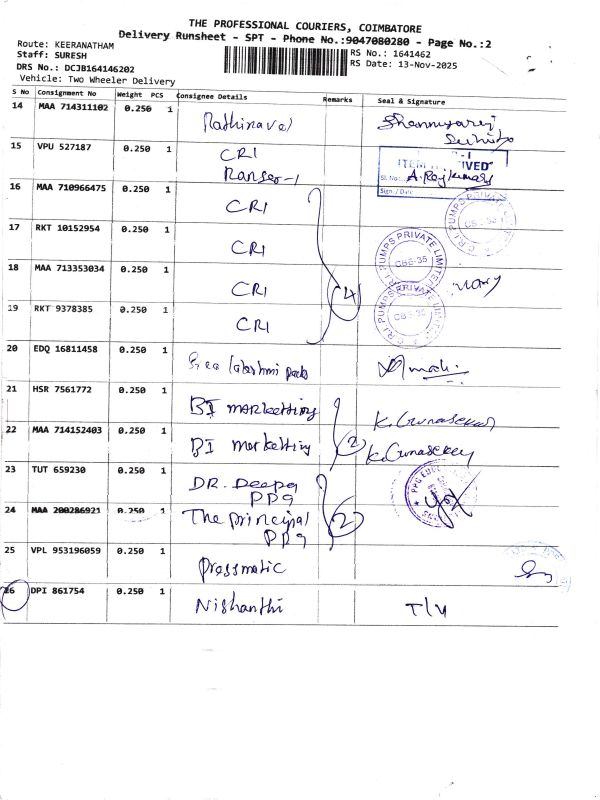 THE PROFESSIONAL COURIERS, COIMBATORE
Delivery Runsheet - SPT - Phone No.:9047080280 - Page No.:2
Route: KEERANATHAM
Staff: SURESH
RS No.: 1641462
DRS No.: DCJB164146202
RS Date: 13-Nov-2025
Vehicle: Two Wheeler Delivery
S No Consignment No Weight PCS Consignee Details Remarks Seal & Signature
14 MAA 714311102 0.250 1 Rathinavel
15 VPU 527187 0.250 1 CRI
Ranser-1 A. Rajkumar
16 MAA 710966475 0.250 1 CRI
C.R.I. PUMPS PRIVATE LIMITED
17 RKT 10152954 0.250 1 CRI
C.R.I. PUMPS PRIVATE LIMITED CBE-35
18 MAA 713353034 0.250 1 CRI 4
19 RKT 9378385 0.250 1 CRI
C.R.I. PUMPS PRIVATE LIMITED CBE-35
20 EDQ 16811458 0.250 1 Sree lakshmi
21 HSR 7561772 0.250 1 BI marketting K. Gunasekar
22 MAA 714152403 0.250 1 BI marketting 2 K. Gunasekar
23 TUT 659230 0.250 1 DR. Deepa
PPG
24 MAA 200286921 0.250 1 The principal 2
PPG
25 VPL 953196059 0.250 1 Pressmatic
26 DPI 861754 0.250 1 Nishanthi T/U